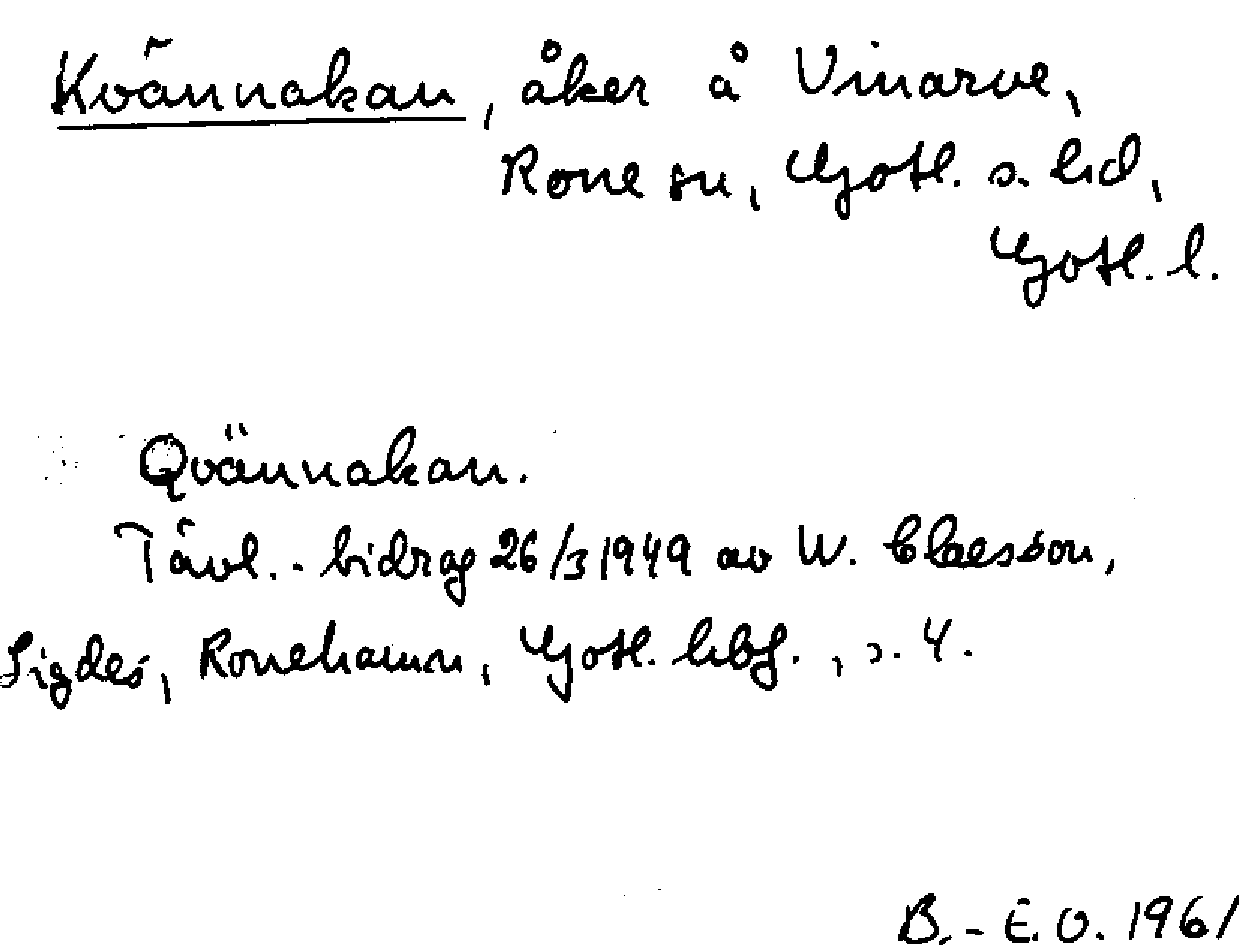 Kvännakan, åker å Vinarve,
Rone sn, Gotl. s. hd,
Gotl. l.
Qvännakan.
Tävl.-bidrag 26/3 1949 av W. Claesson,
Sigdes, Ronehamn, Gotl. hbf., s. 4.
B.-E.O. 1961